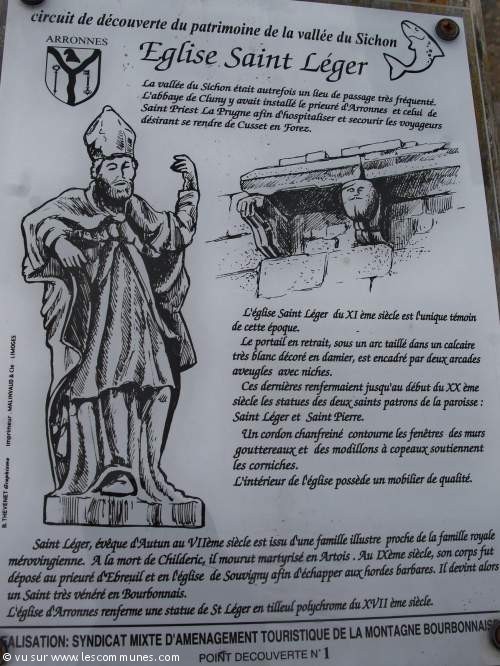 circuit de découverte du patrimoine de la vallée du Sichon
ARRONNES
Eglise Saint Léger
La vallée du Sichon était autrefois un lieu de passage très fréquenté.
L'abbaye de Cluny y avait installé le prieuré d'Arronnes et celui de
Saint Priest La Prugne afin d'hospitaliser et secourir les voyageurs
désirant se rendre de Cusset en Forez.
L'église Saint Léger du XI ème siècle est l'unique témoin
de cette époque.
Le portail en retrait, sous un arc taillé dans un calcaire
très blanc décoré en damier, est encadré par deux arcades
aveugles avec niches.
Ces dernières renfermaient jusqu'au début du XX ème
siècle les statues des deux saints patrons de la paroisse :
Saint Léger et Saint Pierre.
Un cordon chanfreiné contourne les fenêtres des murs
gouttereaux et des modillons à copeaux soutiennent
les corniches.
L'intérieur de l'église possède un mobilier de qualité.
B. THEVENET graphisme imprimeur MALINVAUD & Cie LIMOGES
Saint Léger, évêque d'Autun au VIIème siècle est issu d'une famille illustre proche de la famille royale
mérovingienne. A la mort de Childeric, il mourut martyrisé en Artois. Au IXème siècle, son corps fut
déposé au prieuré d'Ebreuil et en l'église de Souvigny afin d'échapper aux hordes barbares. Il devint alors
un Saint très vénéré en Bourbonnais.
L'église d'Arronnes renferme une statue de St Léger en tilleul polychrome du XVII ème siècle.
EALISATION: SYNDICAT MIXTE D'AMENAGEMENT TOURISTIQUE DE LA MONTAGNE BOURBONNAISE
POINT DECOUVERTE N° 1
© vu sur www.lescommunes.com